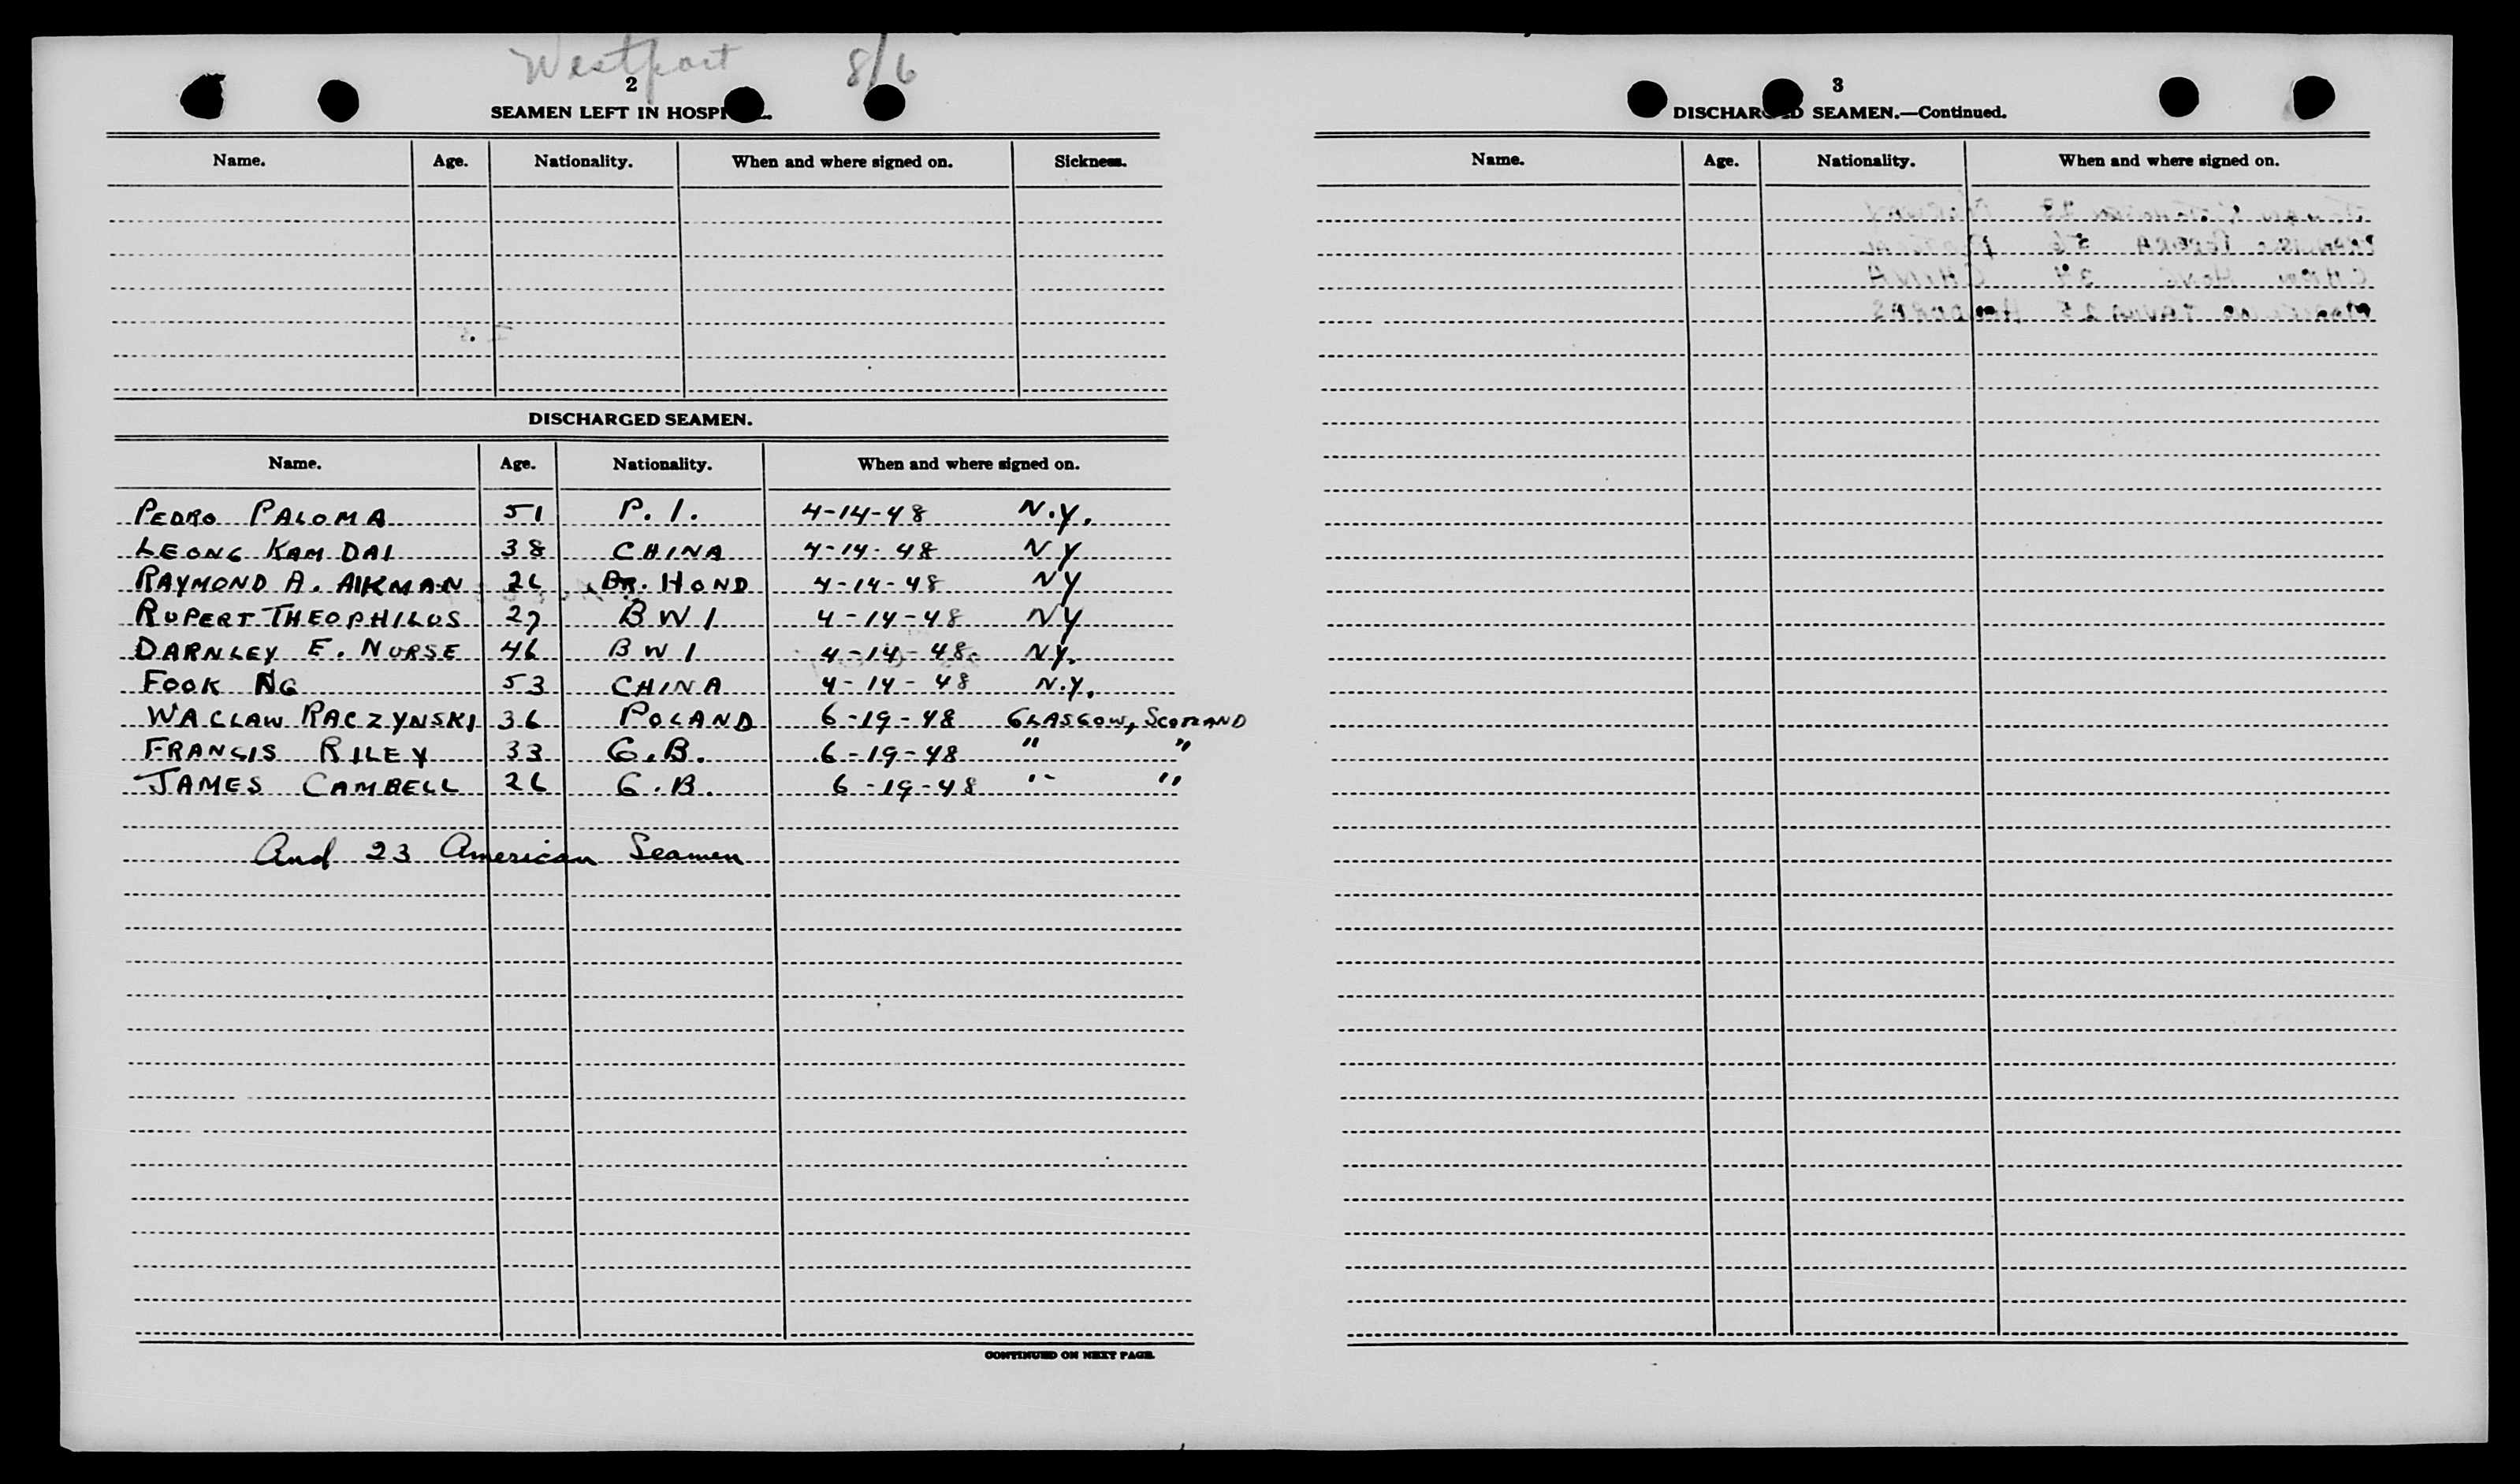 Westport 8/6
2
SEAMEN LEFT IN HOSPI
Name. Age. Nationality. When and where signed on. Sickness.
DISCHARGED SEAMEN.
Name. Age. Nationality. When and where signed on.
PEDRO PALOMA 51 P.I. 4-14-48 N.Y.
LEONG KAM DAI 38 CHINA 4-14-48 NY
RAYMOND A. AIKMAN 26 BR. HOND 4-14-48 NY
RUPERT THEOPHILUS 27 BWI 4-14-48 NY
DARNLEY E. NURSE 46 BWI 4-14-48 NY.
FOOK NG 53 CHINA 4-14-48 N.Y.
WACLAW RACZYNSKI 36 POLAND 6-19-48 GLASGOW, SCOTLAND
FRANCIS RILEY 33 G.B. 6-19-48 " "
JAMES CAMBELL 26 G.B. 6-19-48 " "
And 23 American Seamen
CONTINUED ON NEXT PAGE.
3
DISCHARGED SEAMEN.—Continued.
Name. Age. Nationality. When and where signed on.